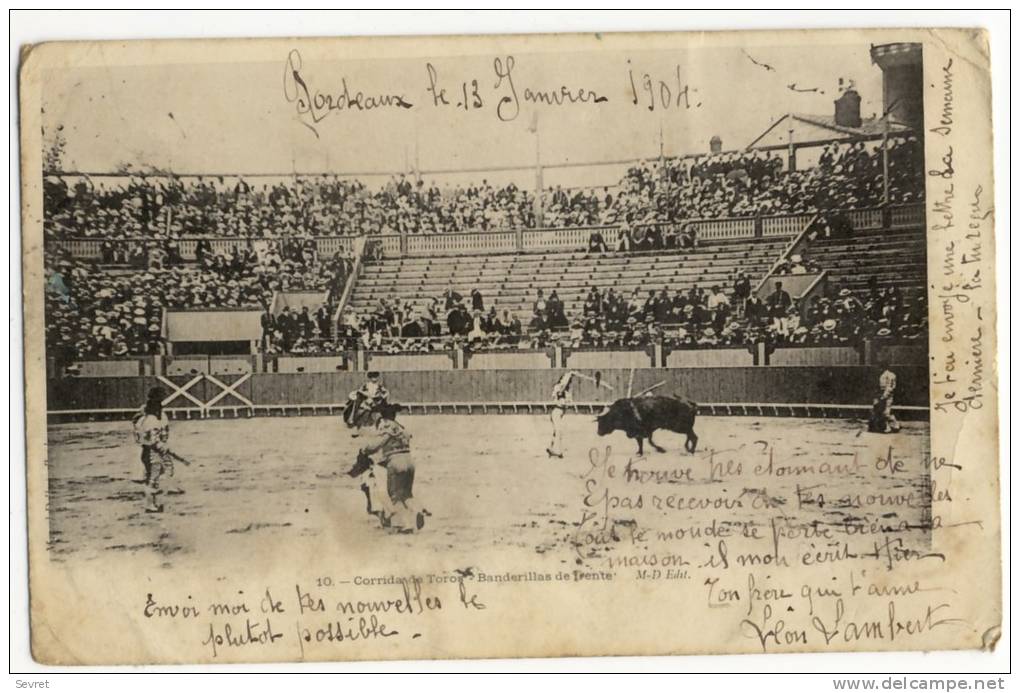 Bordeaux le 13 Janvier 1904.
Je trouve très étonnant de ne
pas recevoir de tes nouvelles
tout le monde se porte bien a la
maison il mon écrit Hier
Ton frère qui t'aime
Léon Lambert
Envoi moi de tes nouvelles le
plutot possible.
Je t'ai envoyé une lettre la Semaine
dernière -
10. — Corrida de Toros - Banderillas de frente M-D Edit.
Sevret
http://www.delcampe.net